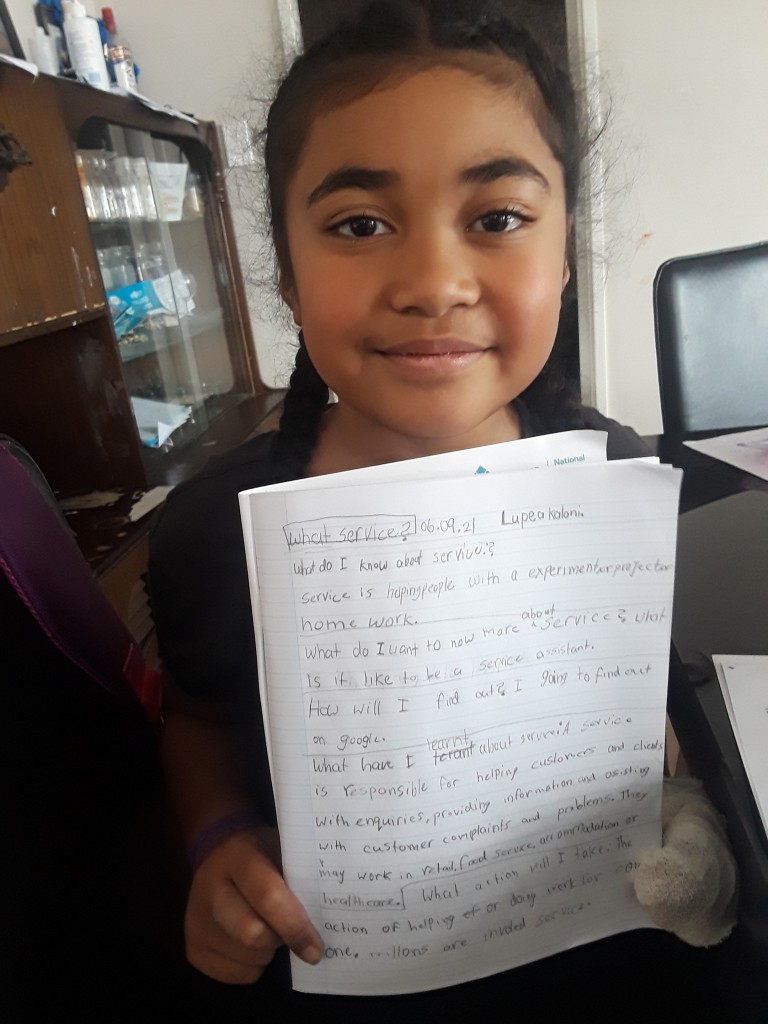 National
What service? 06.09.21 Lupeakaloni
What do I know about service?
service is hapingpeople with a experimentorprojector
home work.
What do I want to now more about service? what
Is it like to be a service assistant.
How will I find out? I going to find out
on google.
What have I learnt about service? A service
is responsible for helping customers and clients
with enquiries, providing information and asisting
with customer complaints and problems. They
may work in retail, food service, accommodation or
healthcare. What action will I take. The
action of helping of or doing work for
one. millons are involed service.